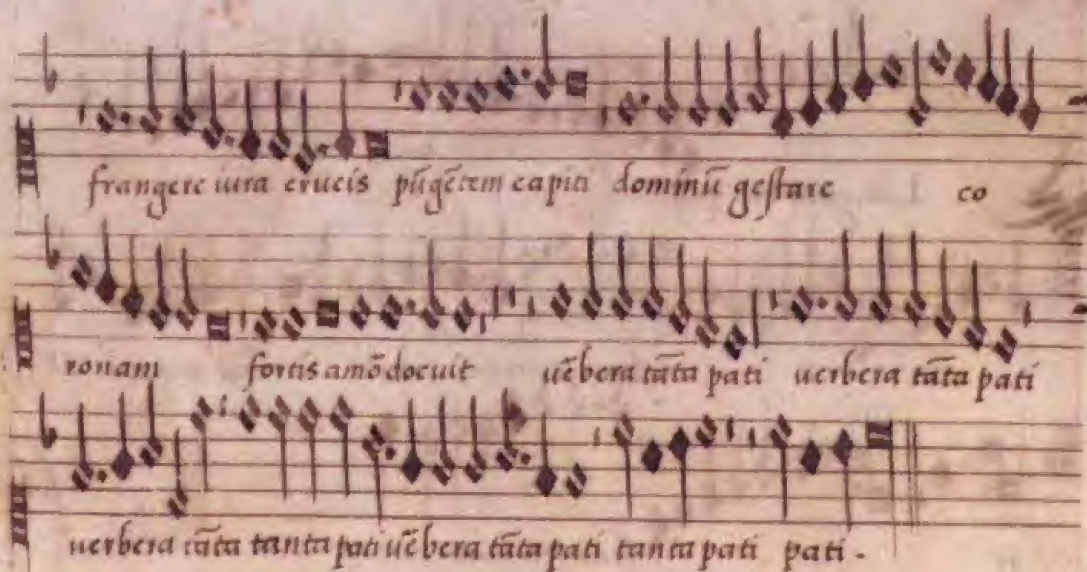 frangere iura crucis pūgētem capiti dominū gestare co
ronam fortis amō docuit uēbera tāta pati uerbera tāta pati
uerbera tāta tanta pati uēbera tāta pati tanta pati pati.